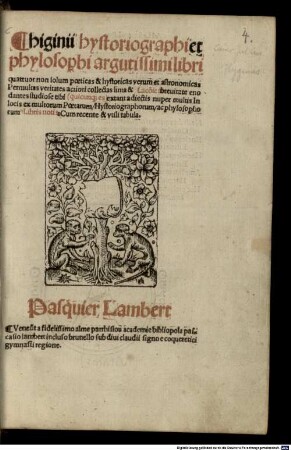 4.
Chiginii hystoriographi et
phylosophi argutissimi libri
quattuor non solum poeticas & hystoricas verum et astronomicas
Permultas veritates actiori collectas lima & Laconi breuitate eno
dantes studiose tibi quicunque es extant adiectis nuper multis in
locis ex multorum Poetarum/Hystoriographorum/ac phylosopho
rum Libris notis Cum recente & vtili tabula.
Pasquier Lambert
Venesit a fidelissimo alme parrhisioru academie bibliopola pas
casio lambert in clauso brunello sub diui claudii signo e coquereticis
gymnasii regione.